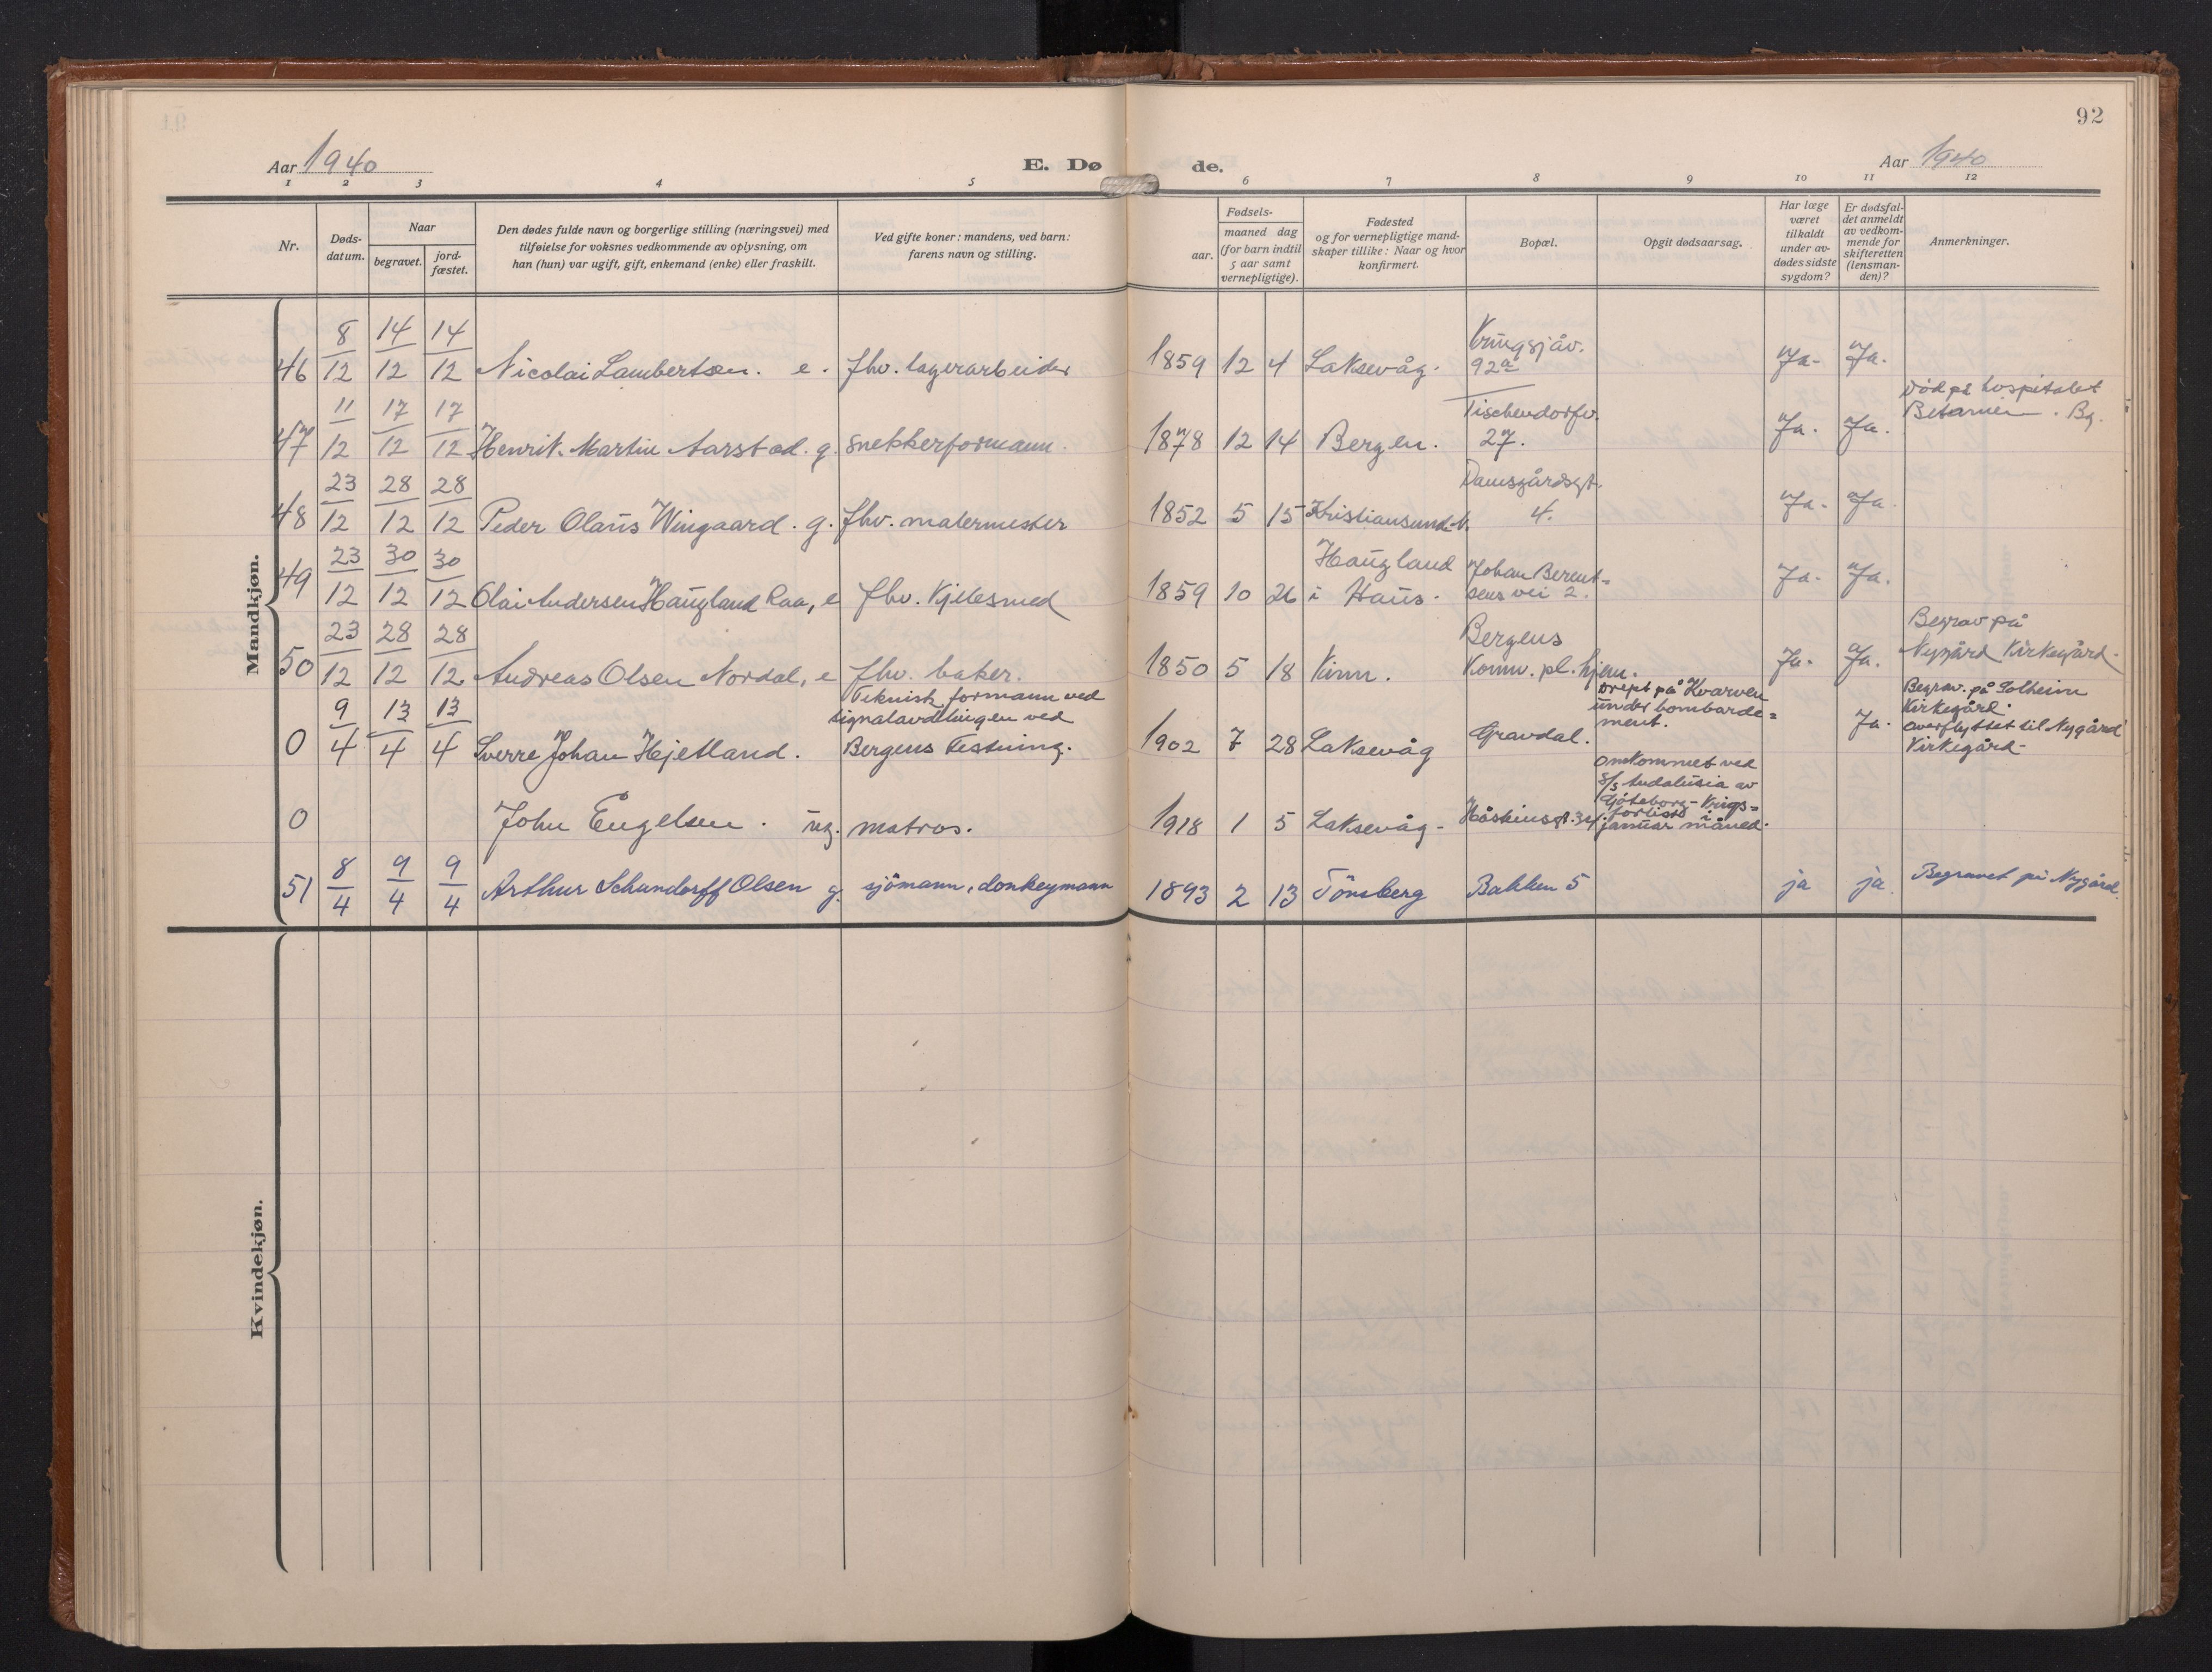 92
Aar 1940
E. Dø
de.
Aar 1940
1 2 3 4 5 6 7 8 9 10 11 12
Nr.
Døds-
datum.
Naar
begravet.
jord-
fæstet.
Den dødes fulde navn og borgerlige stilling (næringsvei) med
tilføielse for voksnes vedkommende av oplysning, om
han (hun) var ugift, gift, enkemand (enke) eller fraskilt.
Ved gifte koner: mandens, ved barn:
farens navn og stilling.
Fødsels-
aar.
maaned dag
(for barn indtil
5 aar samt
vernepligtige).
Fødested
og for vernepligtige mand-
skaper tillike: Naar og hvor
konfirmert.
Bopæl.
Opgit dødsaarsag.
Har læge
været
tilkaldt
under av-
dødes sidste
sygdom?
Er dødsfal-
det anmeldt
av vedkom-
mende for
skifteretten
(lensman-
den)?
Anmerkninger.
Mandkjøn.
46 8/12 14/12 14/12 Nicolai Lambertsen. e. fhv. lagerarbeider 1859 12 4 Laksevåg. Kringsjåv.
92a Ja- Ja.
47 11/12 17/12 17/12 Henrik Martin Aarstad. g. snekkerformann. 1878 12 14 Bergen. Tischendorfv.
27. Ja. Ja. Død på hospitalet
Betanien. Bg.
48 23/12 28/12 28/12 Peder Olaus Wingaard. g. fhv. malermester 1852 5 15 Kristiansund N. Damsgårdsgt.
4. Ja- Ja.
49 23/12 30/12 30/12 Olai Andersen Haugland Raa, e fhv. Kjelesmed 1859 10 26 Haugland
i Haus. Johan Berent-
sens vei 2. Ja- Ja.
50 23/12 28/12 28/12 Andreas Olsen Nordal, e fhv. baker. 1850 5 18 Kinn. Bergens
Komm. pl. hjem. Ja- Ja. Begrav på
Nygård Kirkegård.
0 9/4 13/4 13/4 Sverre Johan Hejetland. Teknisk formann ved
signalavdelingen ved
Bergens Festning. 1902 7 28 Laksevåg Gravdal. Drept på Kvarven
under bombarde=
ment. Ja. Begrav. på Solheim
Kirkegård.
Overflyttet til Nygård
Kirkegård-
0 John Engelsen. ug. matros. 1918 1 5 Laksevåg- 34. Omkommet ved
S/S Andalusia av
Göteborg- Krigs=
forlist i
januar måned.
51 8/4 9/4 9/4 Arthur Schundorff Olsen g. sjömann, donkeymann 1893 2 13 Tönsberg Bakken 5 ja ja. Begravet på Nygård.
Kvindekjøn.